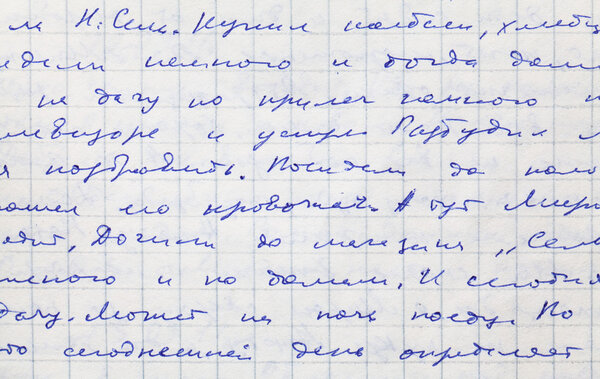 ла Н: Сели. Купил колбасы, хлеба
немного и тогда дом
на дачу но прилег немного
левизоре и уснул Разбудил
поздравить. Посидели до поло
ошел его провожать. А тут Мир
едит, Дошли до магазина „Семь
много и по домам. И сегодня
дачу. Может на ночь поеду. По
то сегоднешней день определяет